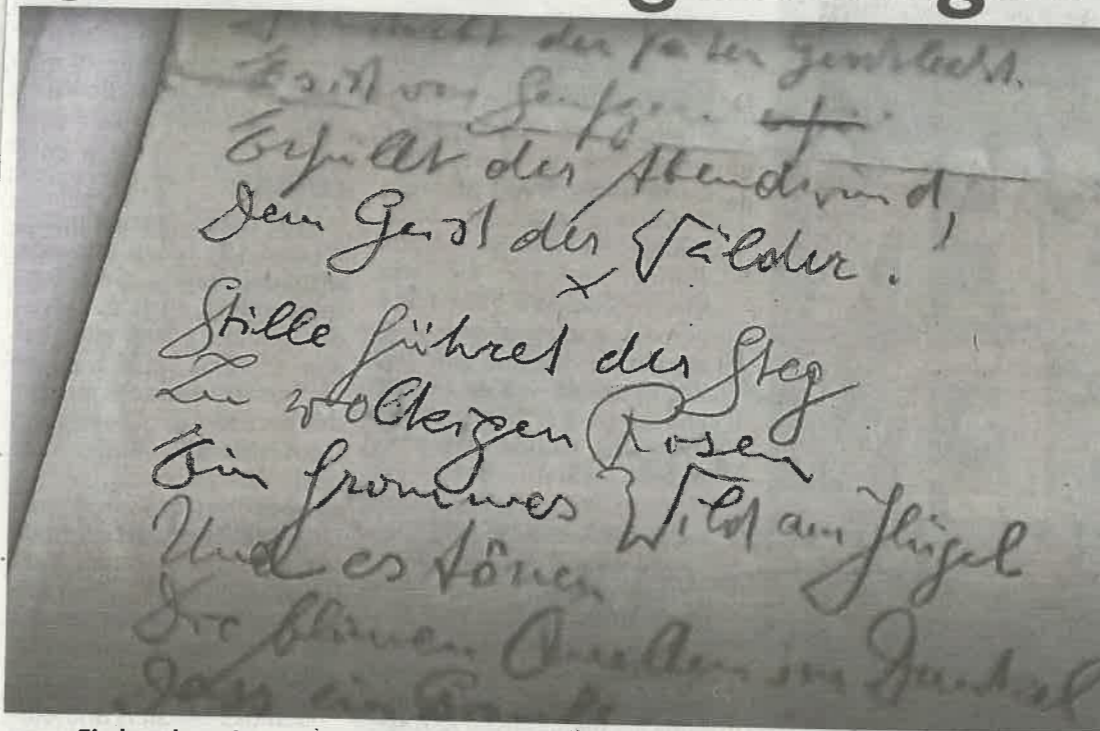 der Geschlecht.
Es ist von
Erfüllt der Abendwind,
Den Geist der Wälder.
Stille führet der Steg
Zu wolkigen Rosen
Ein frommes Wild am Hügel
Und es tönen
Die blauen Quellen im Dunkel
Dass ein